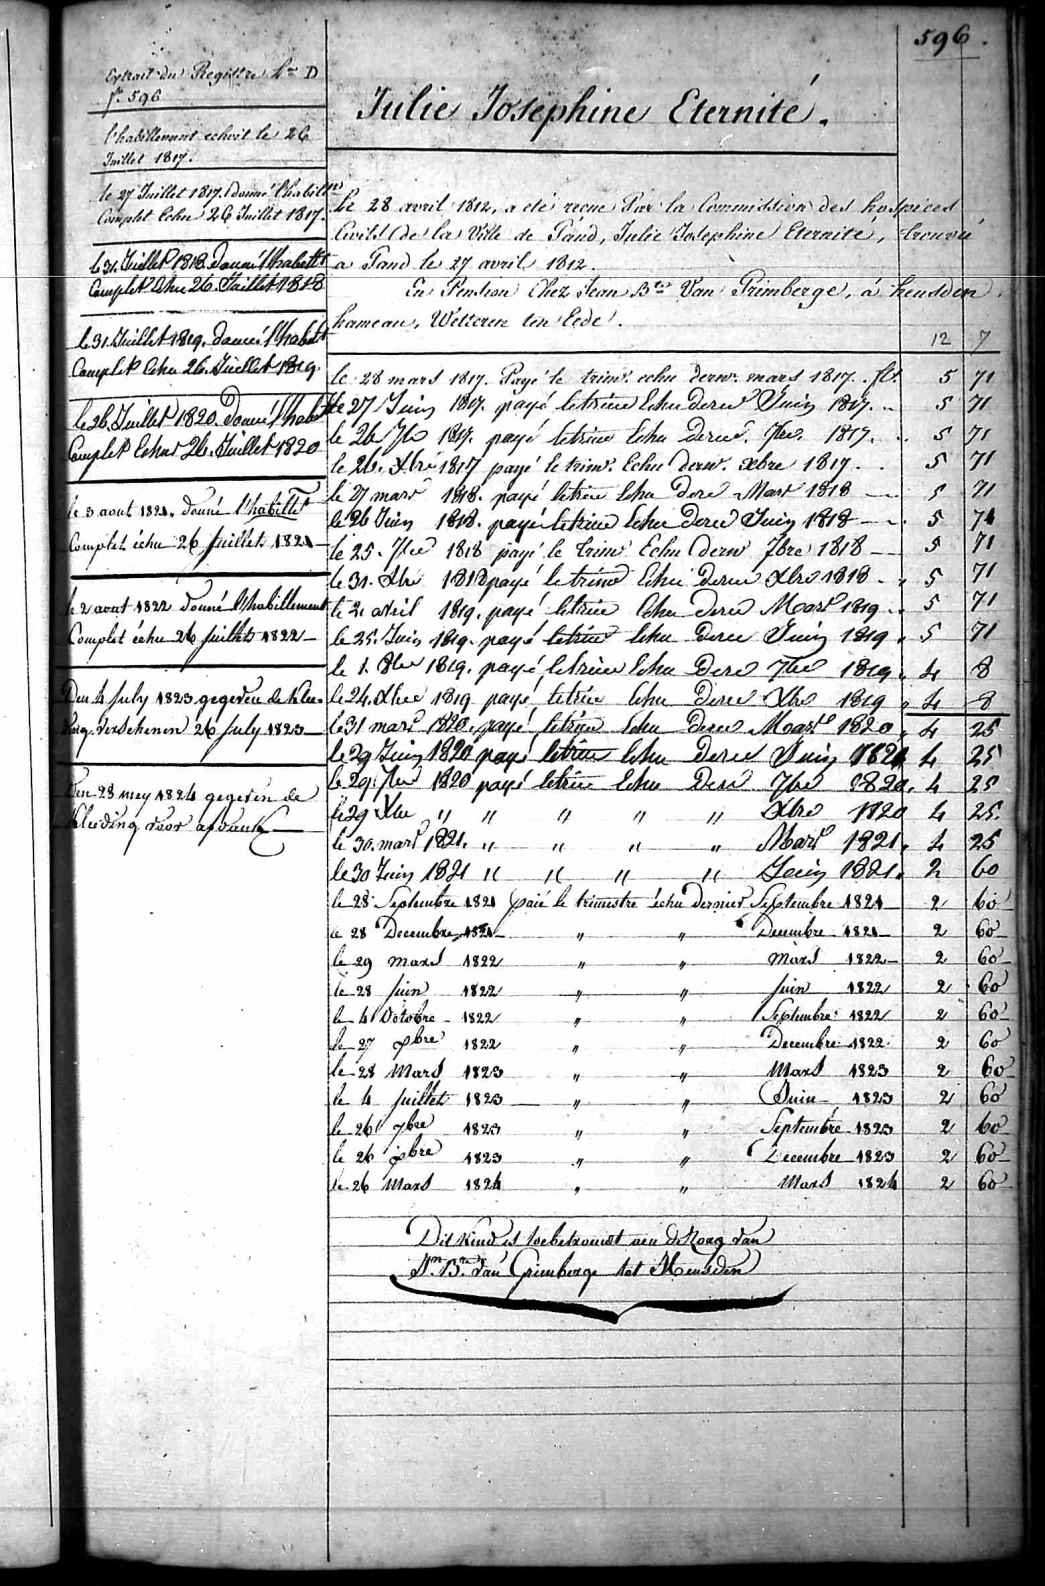 596.
Extrait du Registre Lre D
fo 596
l'habillement echoit le 26
Juillet 1817.
le 27 Juillet 1817. Donné l'habillt
Complet Echu 26 Juillet 1817.
le 31. Juillet 1818. donné l'habillt
Complet Echu 26. Juillet 1818
le 31. Juillet 1819. donné l'habillt
Complet Echu 26. Juillet 1819.
le 26. Juillet 1820. Donné l'habillt
Complet Echu 26. Juillet 1820
le 3 aout 1821. donné l'habillt
Complet échu 26 juillet 1821
le 2 aout 1822 donné l'habillement
Complet échu 26 juillet 1822
Den 4 July 1823 gegeven de klee-
ding verschenen 26 july 1823
Den 28 mey 1824 gegeven de
kleeding voor
Julie Josephine Eternité.
Le 28 avril 1812, a été recue Par la Commission des hospices
Civils de la Ville de Gand, Julie Josephine Eternité, trouvée
a Gand le 27 avril 1812.
En Pension Chez Jean Bte Van Grimberge, á heusden,
hameau, Wetteren ten Eede.
12 7
le 28 mars 1817. Payé le trimr. echu dernr. mars 1817. fl. 5 71
le 27 Juin 1817. payé le trim Echu derer Juin 1817. 5 71
le 26 7br 1817. payé le trim Echu derer. 7bre. 1817. 5 71
le 26. Xbre 1817 payé le trimr. Echu dernr. Xbre 1817. 5 71
le 27 mars 1818. payé le trim Echu derer Mars 1818 5 71
le 26 Juin 1818. payé le trim Echu derer Juin 1818 5 71
le 25. 7bre 1818 payé le trimr Echu dernr 7bre 1818 5 71
le 31. Xbre 1818 payé le trim Echu derer Xbre 1818 5 71
le 2 avril 1819. payé le trim Echu derer Mars 1819 5 71
le 25. Juin 1819. payé le trim Echu derer Juin 1819 5 71
le 1. 8bre 1819. payé le trim Echu derer 7bre 1819 4 8
le 24. Xbre 1819 payé le trim Echu derer Xbre 1819 4 8
le 31 mars 1820. payé le trim Echu derer Mars 1820 4 25
le 29 Juin 1820 payé le trim Echu derer Juin 1820 4 25
le 29. 7bre 1820 payé le trim Echu derer 7bre 1820. 4 25
le 29 Xbre " " " " " Xbre 1820 4 25.
le 30. mars 1821. " " " " Mars 1821. 4 25
le 30 Juin 1821 " " " " Juin 1821. 2 60
le 28 Septembre 1821 payé le trimestre échu dernier Septembre 1821 2 60
le 28 Decembre 1821 " " Decembre 1821 2 60
le 29 mars 1822 " " mars 1822 2 60
le 28 juin 1822 " " juin 1822 2 60
le 4 Octobre 1822 " " Septembre 1822 2 60
le 27 Xbre 1822 " " Decembre 1822 2 60
le 28 Mars 1823 " " Mars 1823 2 60
le 4 juillet 1823 " " Juin 1823 2 60
le 26 7bre 1823 " " Septembre 1823 2 60
le 26 Xbre 1823 " " Decembre 1823 2 60
le 26 Mars 1824 " " Mars 1824 2 60
Dit Kind is toebetrouwt aen de Zorg van
Jn. Bte. van Grimberge tot Heusden